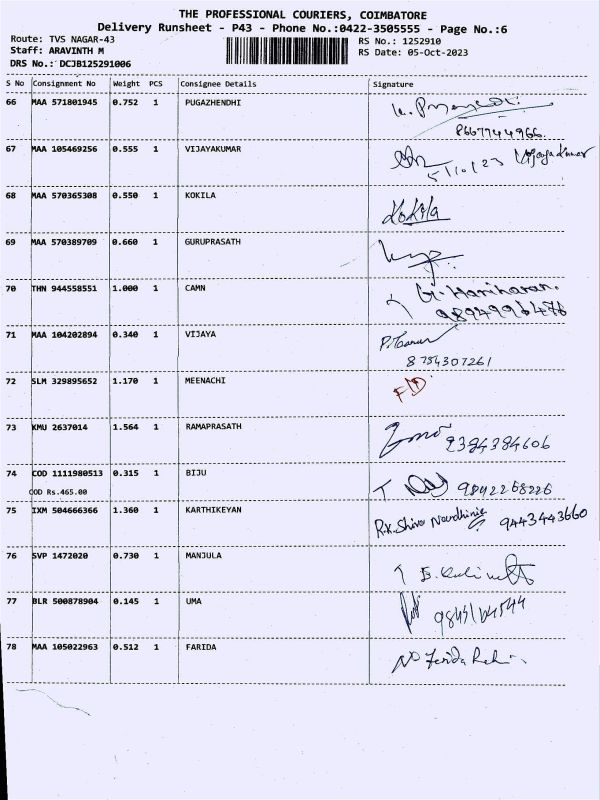 THE PROFESSIONAL COURIERS, COIMBATORE
Delivery Runsheet - P43 - Phone No.:0422-3505555 - Page No.:6
Route: TVS NAGAR-43 RS No.: 1252910
Staff: ARAVINTH M RS Date: 05-Oct-2023
DRS No.: DCJB125291006
S No Consignment No Weight PCS Consignee Details Signature
66 MAA 571801945 0.752 1 PUGAZHENDHI
8667744966
67 MAA 105469256 0.555 1 VIJAYAKUMAR Vijayakumar
5/10/23
68 MAA 570365308 0.550 1 KOKILA Kokila
69 MAA 570389709 0.660 1 GURUPRASATH
70 THN 944558551 1.000 1 CAMN G. Hariharan.
9894996476
71 MAA 104202894 0.340 1 VIJAYA
8754307261
72 SLM 329895652 1.170 1 MEENACHI
73 KMU 2637014 1.564 1 RAMAPRASATH 9384384606
74 COD 1111980513 0.315 1 BIJU 9842268226
COD Rs.465.00
75 IXM 504666366 1.360 1 KARTHIKEYAN R.K. Shiva 9443443660
76 SVP 1472020 0.730 1 MANJULA
77 BLR 500878904 0.145 1 UMA
78 MAA 105022963 0.512 1 FARIDA